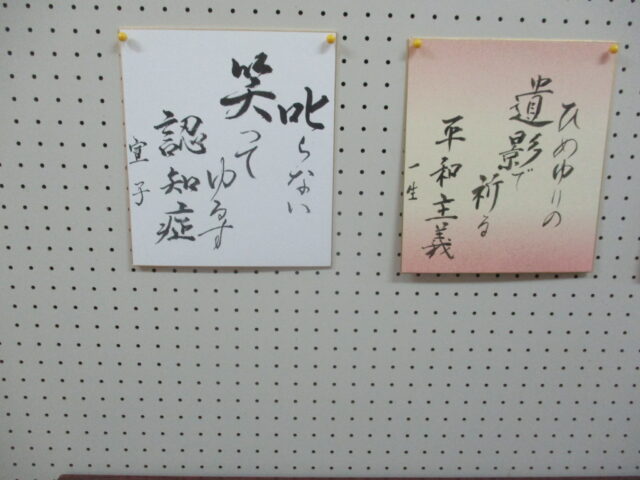 叱らない
笑って
ゆるす
認知症
宣子
ひめゆりの
遺影で
祈る
平和主義
一生